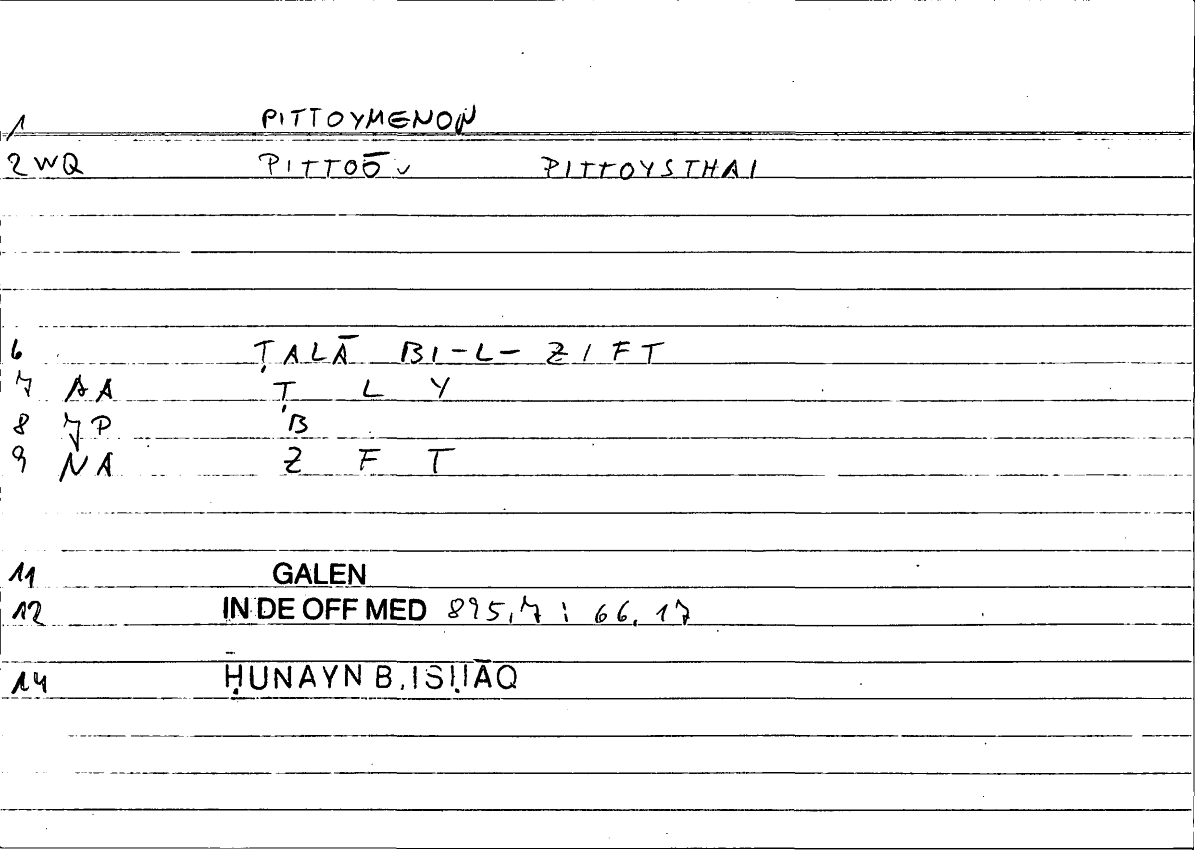 1 PITTOYMENON
2 WQ PITTOŌ PITTOYSTHAI
6 ṬALĀ BI-L-ZIFT
7 AA Ṭ L Y
8 JP B
9 NA Z F T
11 GALEN
12 IN DE OFF MED 895,7 : 66,17
14 ḤUNAYN B. ISḤĀQ